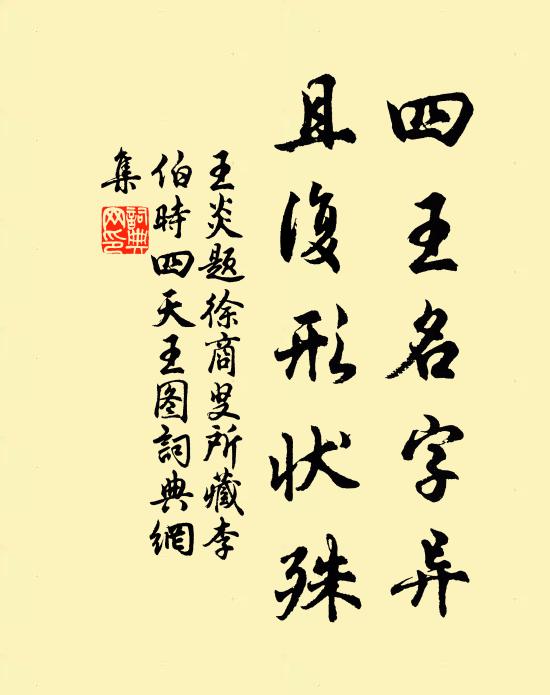 四王名字异
且復形状殊
王炎题徐商叟所藏李
伯時四天王图詞典網
集
詞典網印